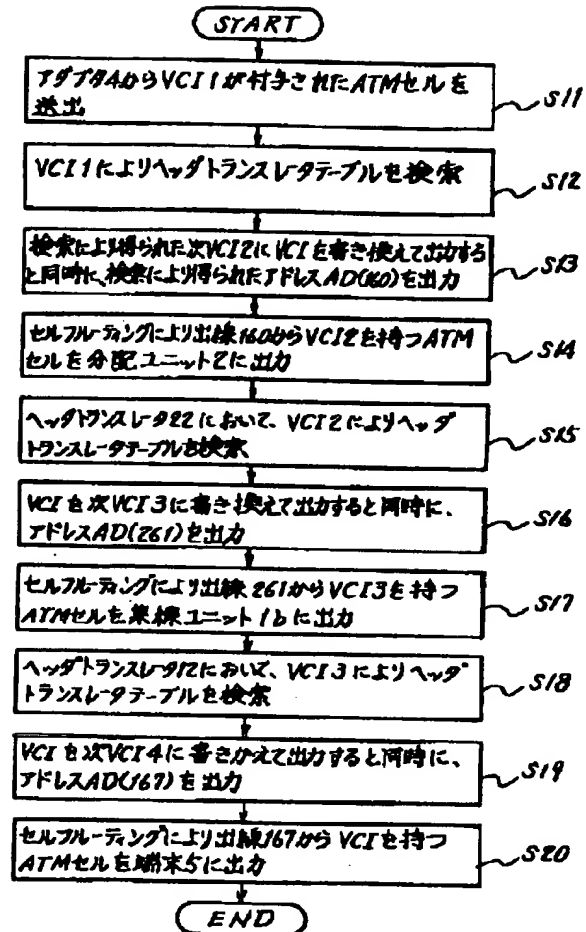 START
アダプタ4からVCI1が付与されたATMセルを
送出
S11
VCI1によりヘッダトランスレータテーブルを検索
S12
検索により得られた次VCI2にVCIを書き換えて出力する
と同時に、検索により得られたアドレスAD(160)を出力
S13
セルフルーティングにより出線160からVCI2を持つATM
セルを分配ユニット2に出力
S14
ヘッダトランスレータ22において、VCI2によりヘッダ
トランスレータテーブルを検索
S15
VCIを次VCI3に書き換えて出力すると同時に、
アドレスAD(261)を出力
S16
セルフルーティングにより出線261からVCI3を持つ
ATMセルを集線ユニット1bに出力
S17
ヘッダトランスレータ12において、VCI3によりヘッダ
トランスレータテーブルを検索
S18
VCIを次VCI4に書きかえて出力すると同時に、
アドレスAD(167)を出力
S19
セルフルーティングにより出線167からVCIを持つ
ATMセルを端末5に出力
S20
END